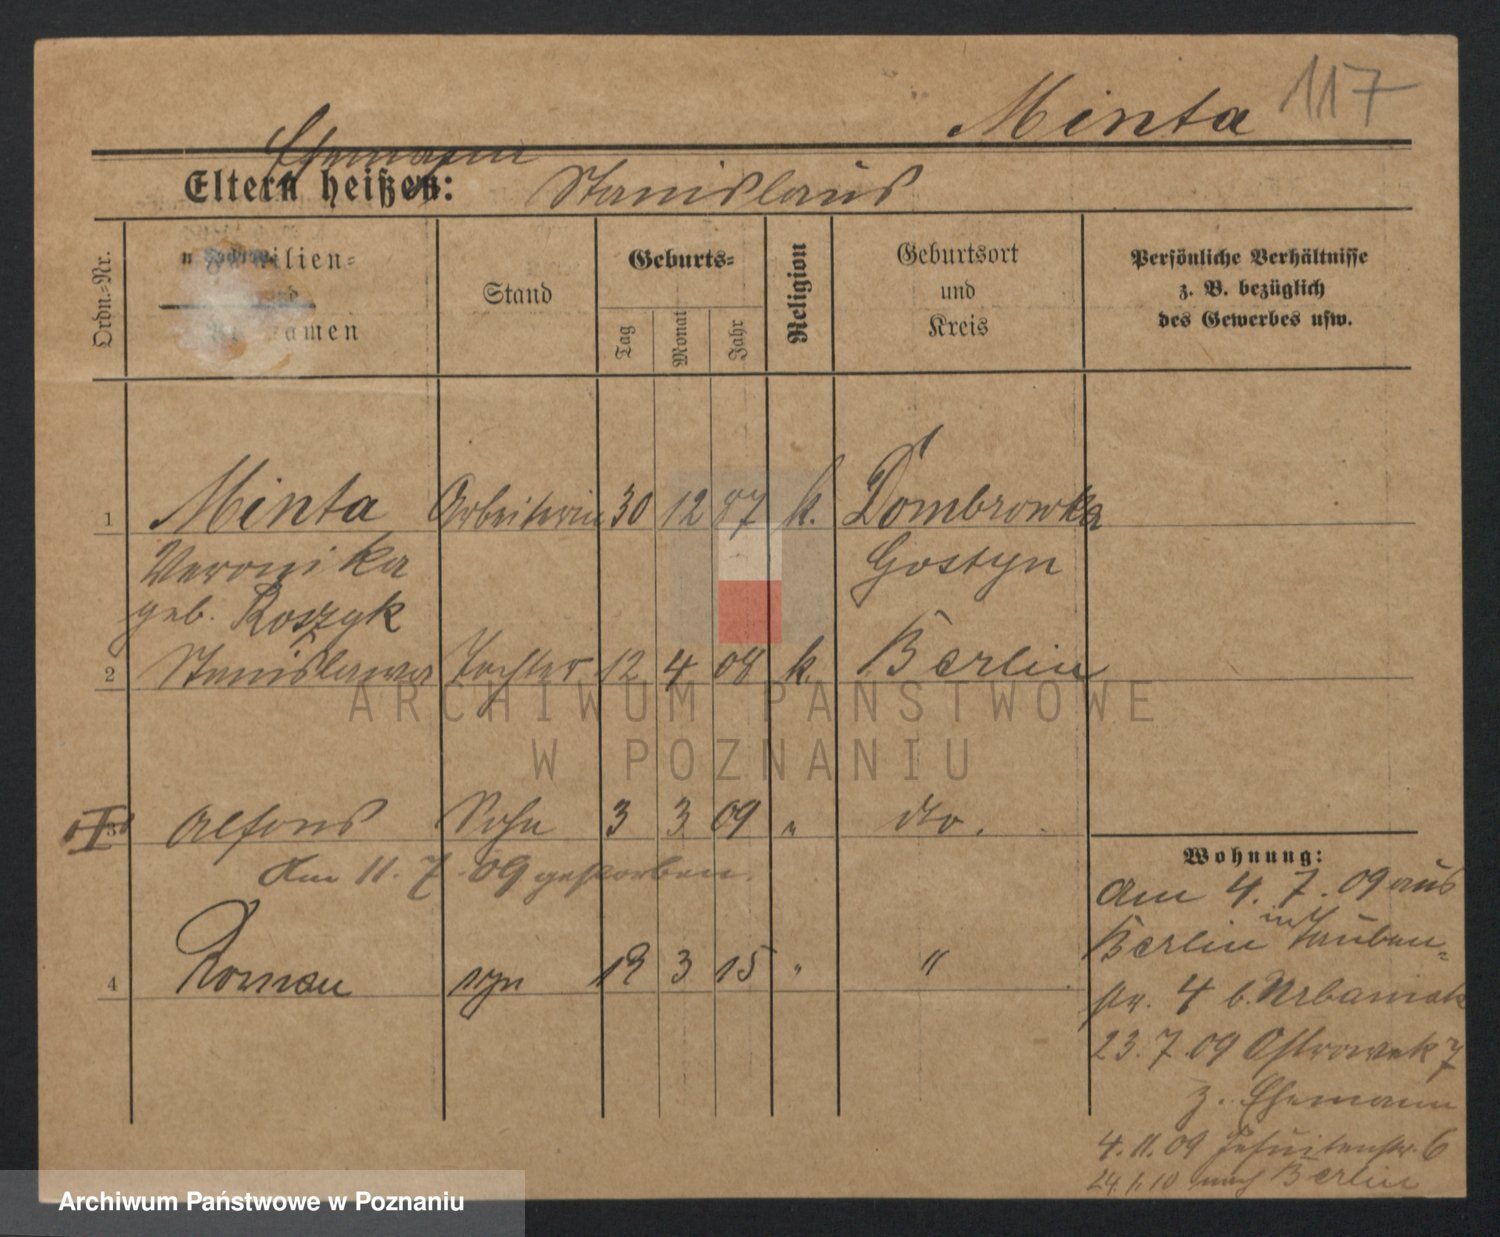 Minta 117
Ehemann
Eltern heißen: Stanislaus
Ordn.-Nr.
Familien-
und
Vornamen
Stand
Geburts-
Tag
Monat
Jahr
Religion
Geburtsort
und
Kreis
Persönliche Verhältnisse
z. B. bezüglich
des Gewerbes usw.
1 Minta Arbeiterin 30 12 87 k. Dombrowka
Veronika Gostyn
geb. Roszyk
2 Stanislawa Tochter 12 4 08 k. Berlin
ARCHIWUM PAŃSTWOWE
W POZNANIU
3 Alfons Sohn 3 3 09 " dto.
am 11. 7. 09 gestorben.
4 Roman 3 15 " "
Wohnung:
am 4. 7. 09 aus
Berlin in Tauben-
str. 4 b. Urbaniak
23. 7. 09 Ostrowek 7
z. Ehemann
4. 11. 09 Jesuitenstr. 6
24. 1. 10 nach Berlin
Archiwum Państwowe w Poznaniu